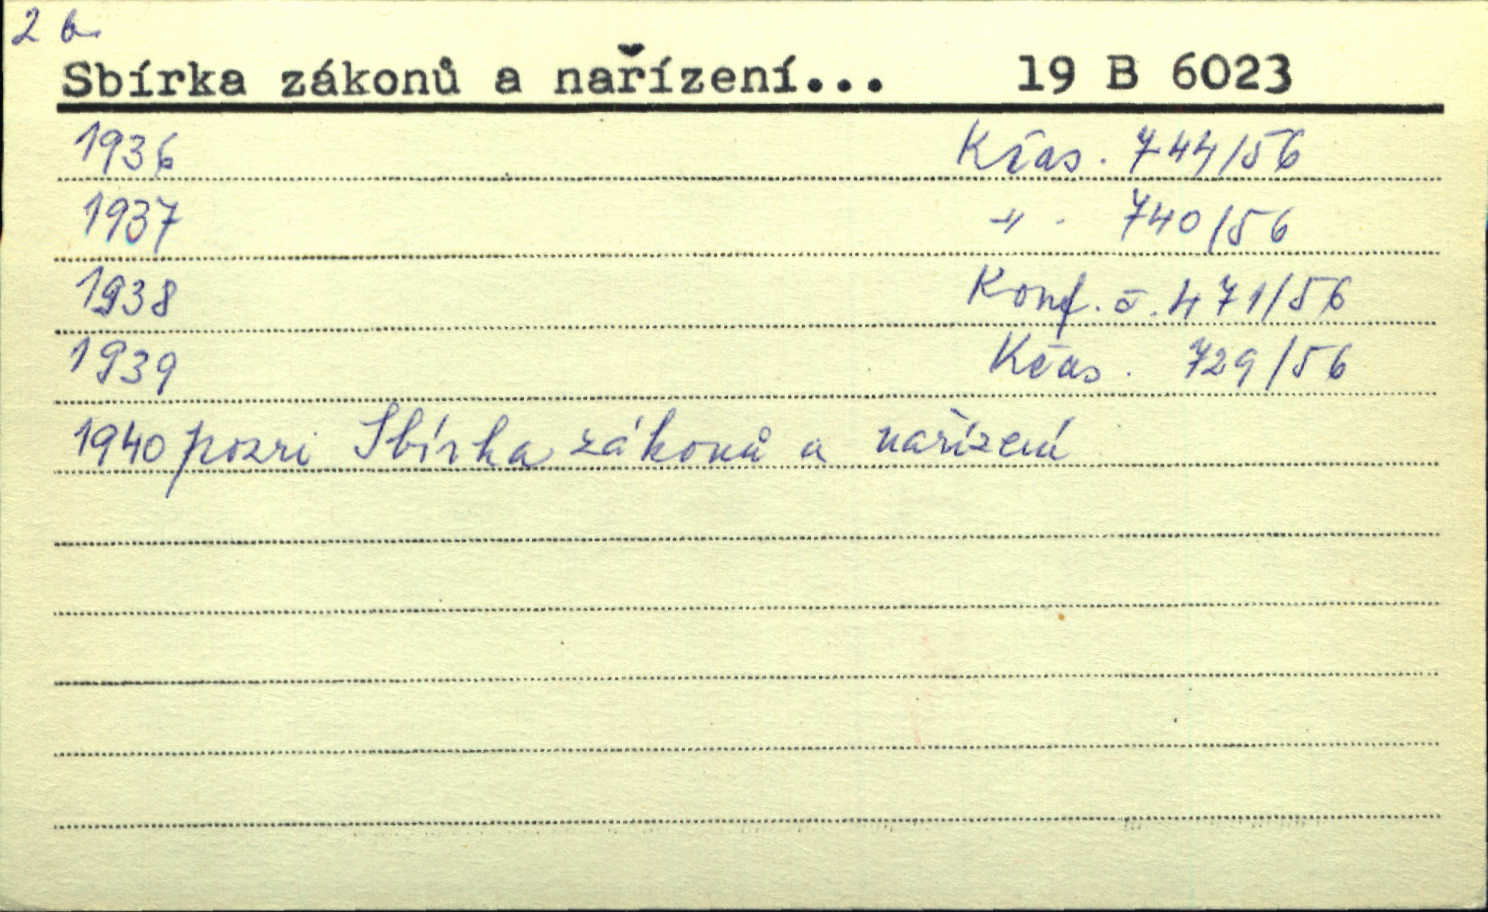 2 b.
Sbírka zákonů a nařízení... 19 B 6023
1936 Kčas. 744/56
1937 -〃- 740/56
1938 Konf. č. 471/56
1939 Kčas. 729/56
1940 pozri Sbírka zákonů a nařízení